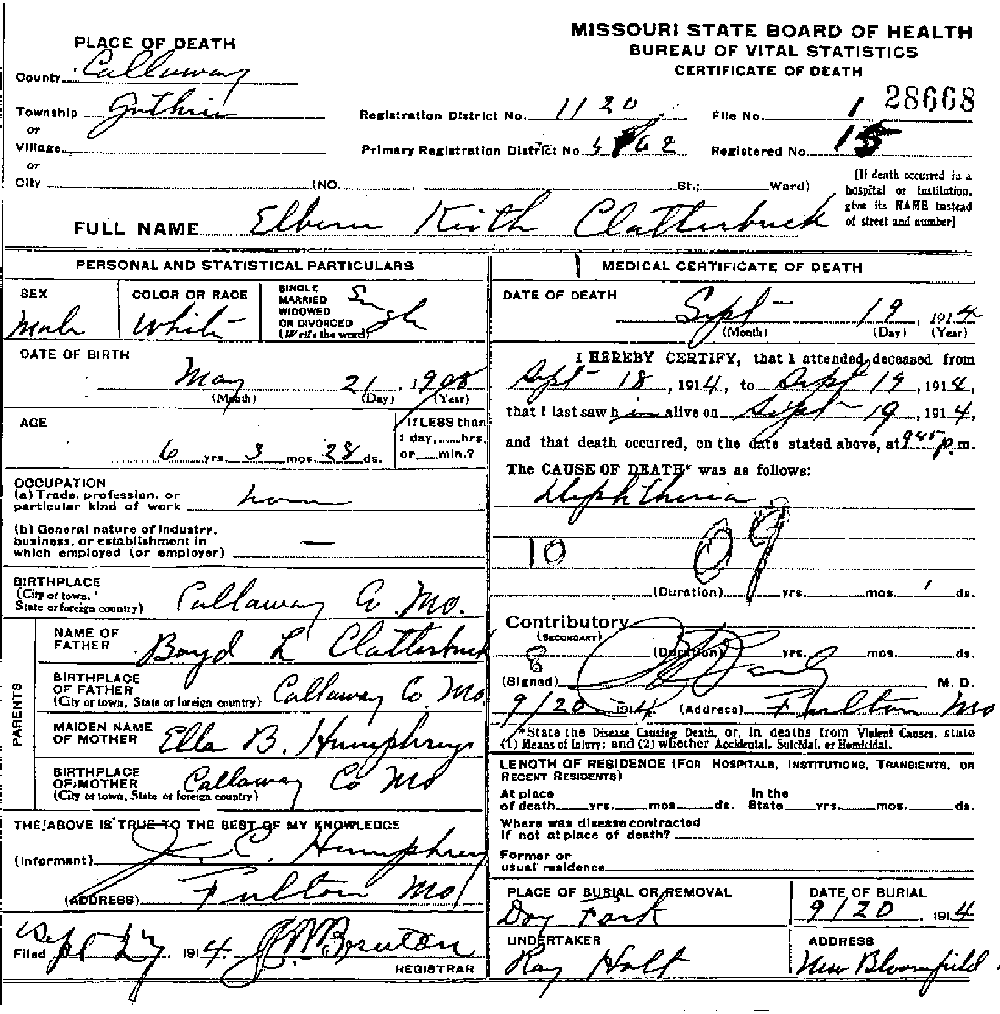 MISSOURI STATE BOARD OF HEALTH
BUREAU OF VITAL STATISTICS
CERTIFICATE OF DEATH
PLACE OF DEATH
County Callaway
Township Guthrie
or
Village
or
City (NO. St.; Ward)
Registration District No. 1120 File No. 1 28668
Primary Registration District No. Registered No. 15
[If death occurred in a hospital or institution, give its NAME instead of street and number]
FULL NAME Elburn Keith Clatterbuck
PERSONAL AND STATISTICAL PARTICULARS
SEX Male
COLOR OR RACE White
SINGLE MARRIED WIDOWED OR DIVORCED (Write the word) Single
DATE OF BIRTH
May 21, 1908
(Month) (Day) (Year)
AGE
6 yrs. 3 mos. 28 ds.
If LESS than 1 day, hrs. or min.?
OCCUPATION
(a) Trade, profession, or particular kind of work
(b) General nature of Industry, business, or establishment in which employed (or employer) —
BIRTHPLACE
(City or town, State or foreign country) Callaway Co Mo.
PARENTS
NAME OF FATHER Boyd L Clatterbuck
BIRTHPLACE OF FATHER
(City or town, State or foreign country) Callaway Co Mo
MAIDEN NAME OF MOTHER Ella B. Humphreys
BIRTHPLACE OF MOTHER
(City or town, State or foreign country) Callaway Co Mo
THE ABOVE IS TRUE TO THE BEST OF MY KNOWLEDGE
(Informant) J. C. Humphrey
(ADDRESS) Fulton Mo
Filed Sept 27, 1914 Bruton
REGISTRAR
MEDICAL CERTIFICATE OF DEATH
DATE OF DEATH
Sept 19 1914
(Month) (Day) (Year)
I HEREBY CERTIFY, that I attended deceased from
Sept 18, 1914, to Sept 19, 1914,
that I last saw him alive on Sept 19, 1914,
and that death occurred, on the date stated above, at 9 45 p.m.
The CAUSE OF DEATH* was as follows:
Diphtheria
10 09
(Duration) yrs. mos. ds.
Contributory
(SECONDARY)
8 (Duration) yrs. mos. ds.
(Signed) M. D.
9/20 1914 (Address) Fulton Mo
*State the Disease Causing Death, or, in deaths from Violent Causes, state
(1) Means of Injury; and (2) whether Accidental, Suicidal, or Homicidal.
LENGTH OF RESIDENCE (FOR HOSPITALS, INSTITUTIONS, TRANSIENTS, OR RECENT RESIDENTS)
At place of death yrs. mos. ds. In the State yrs. mos. ds.
Where was disease contracted
If not at place of death?
Former or
usual residence
PLACE OF BURIAL OR REMOVAL
Dry Fork
DATE OF BURIAL
9/20 1914
UNDERTAKER
Ray Holt
ADDRESS
New Bloomfield